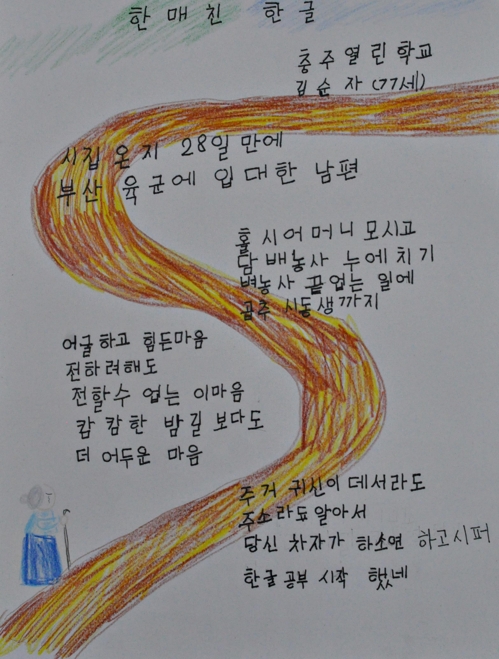 한 매 친 한 글
충주열린학교
김순자(77세)
시집 온지 28일만에
부산 육군에 입대한 남편
홀 시어머니 모시고
담배농사 누에치기
벼농사 끝없는 일에
곱추 시동생까지
어굴하고 힘든마음
전하려해도
전할수 없는 이마음
캄캄한 밤길 보다도
더 어두운 마음
주거 귀신이 데서라도
주소라도 알아서
당신 차자가 하소연 하고시퍼
한글공부 시작 했네